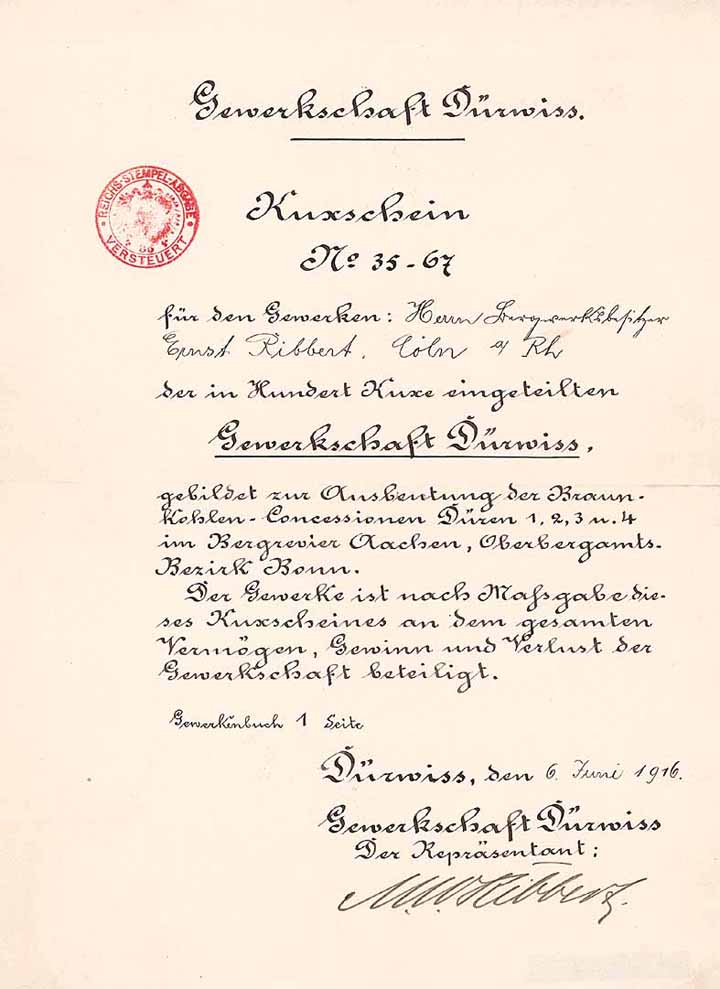 Gewerkschaft Dürwiss.
REICHS-STEMPEL-ABGABE
VERSTEUERT
Kuxschein
No 35-67
für den Gewerken: Herrn Bergwerksbesitzer
Ernst Ribbert, Cöln a/ Rh
der in Hundert Kuxe eingeteilten
Gewerkschaft Dürwiss,
gebildet zur Ausbeutung der Braun-
kohlen-Concessionen Düren 1, 2, 3 u. 4
im Bergrevier Aachen, Oberbergamts-
Bezirk Bonn.
Der Gewerke ist nach Maßgabe die-
ses Kuxscheines an dem gesamten
Vermögen, Gewinn und Verlust der
Gewerkschaft beteiligt.
Gewerkenbuch 1 Seite
Dürwiss, den 6. Juni 1916.
Gewerkschaft Dürwiss
Der Repräsentant:
Ribbert.